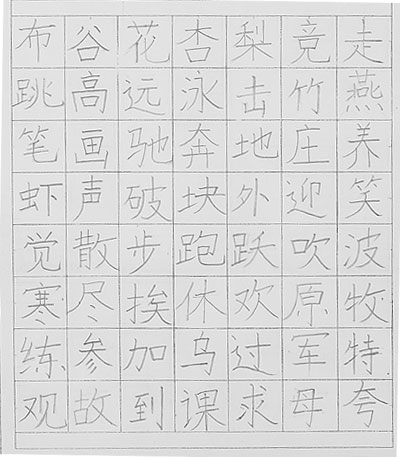 布谷花杏梨竟走
跳高远泳击竹燕
笔画驰奔地庄养
虾声破块外迎笑
觉散步跑跃吹波
寒尽挨休欢原牧
练参加乌过军特
观故到课求母夸